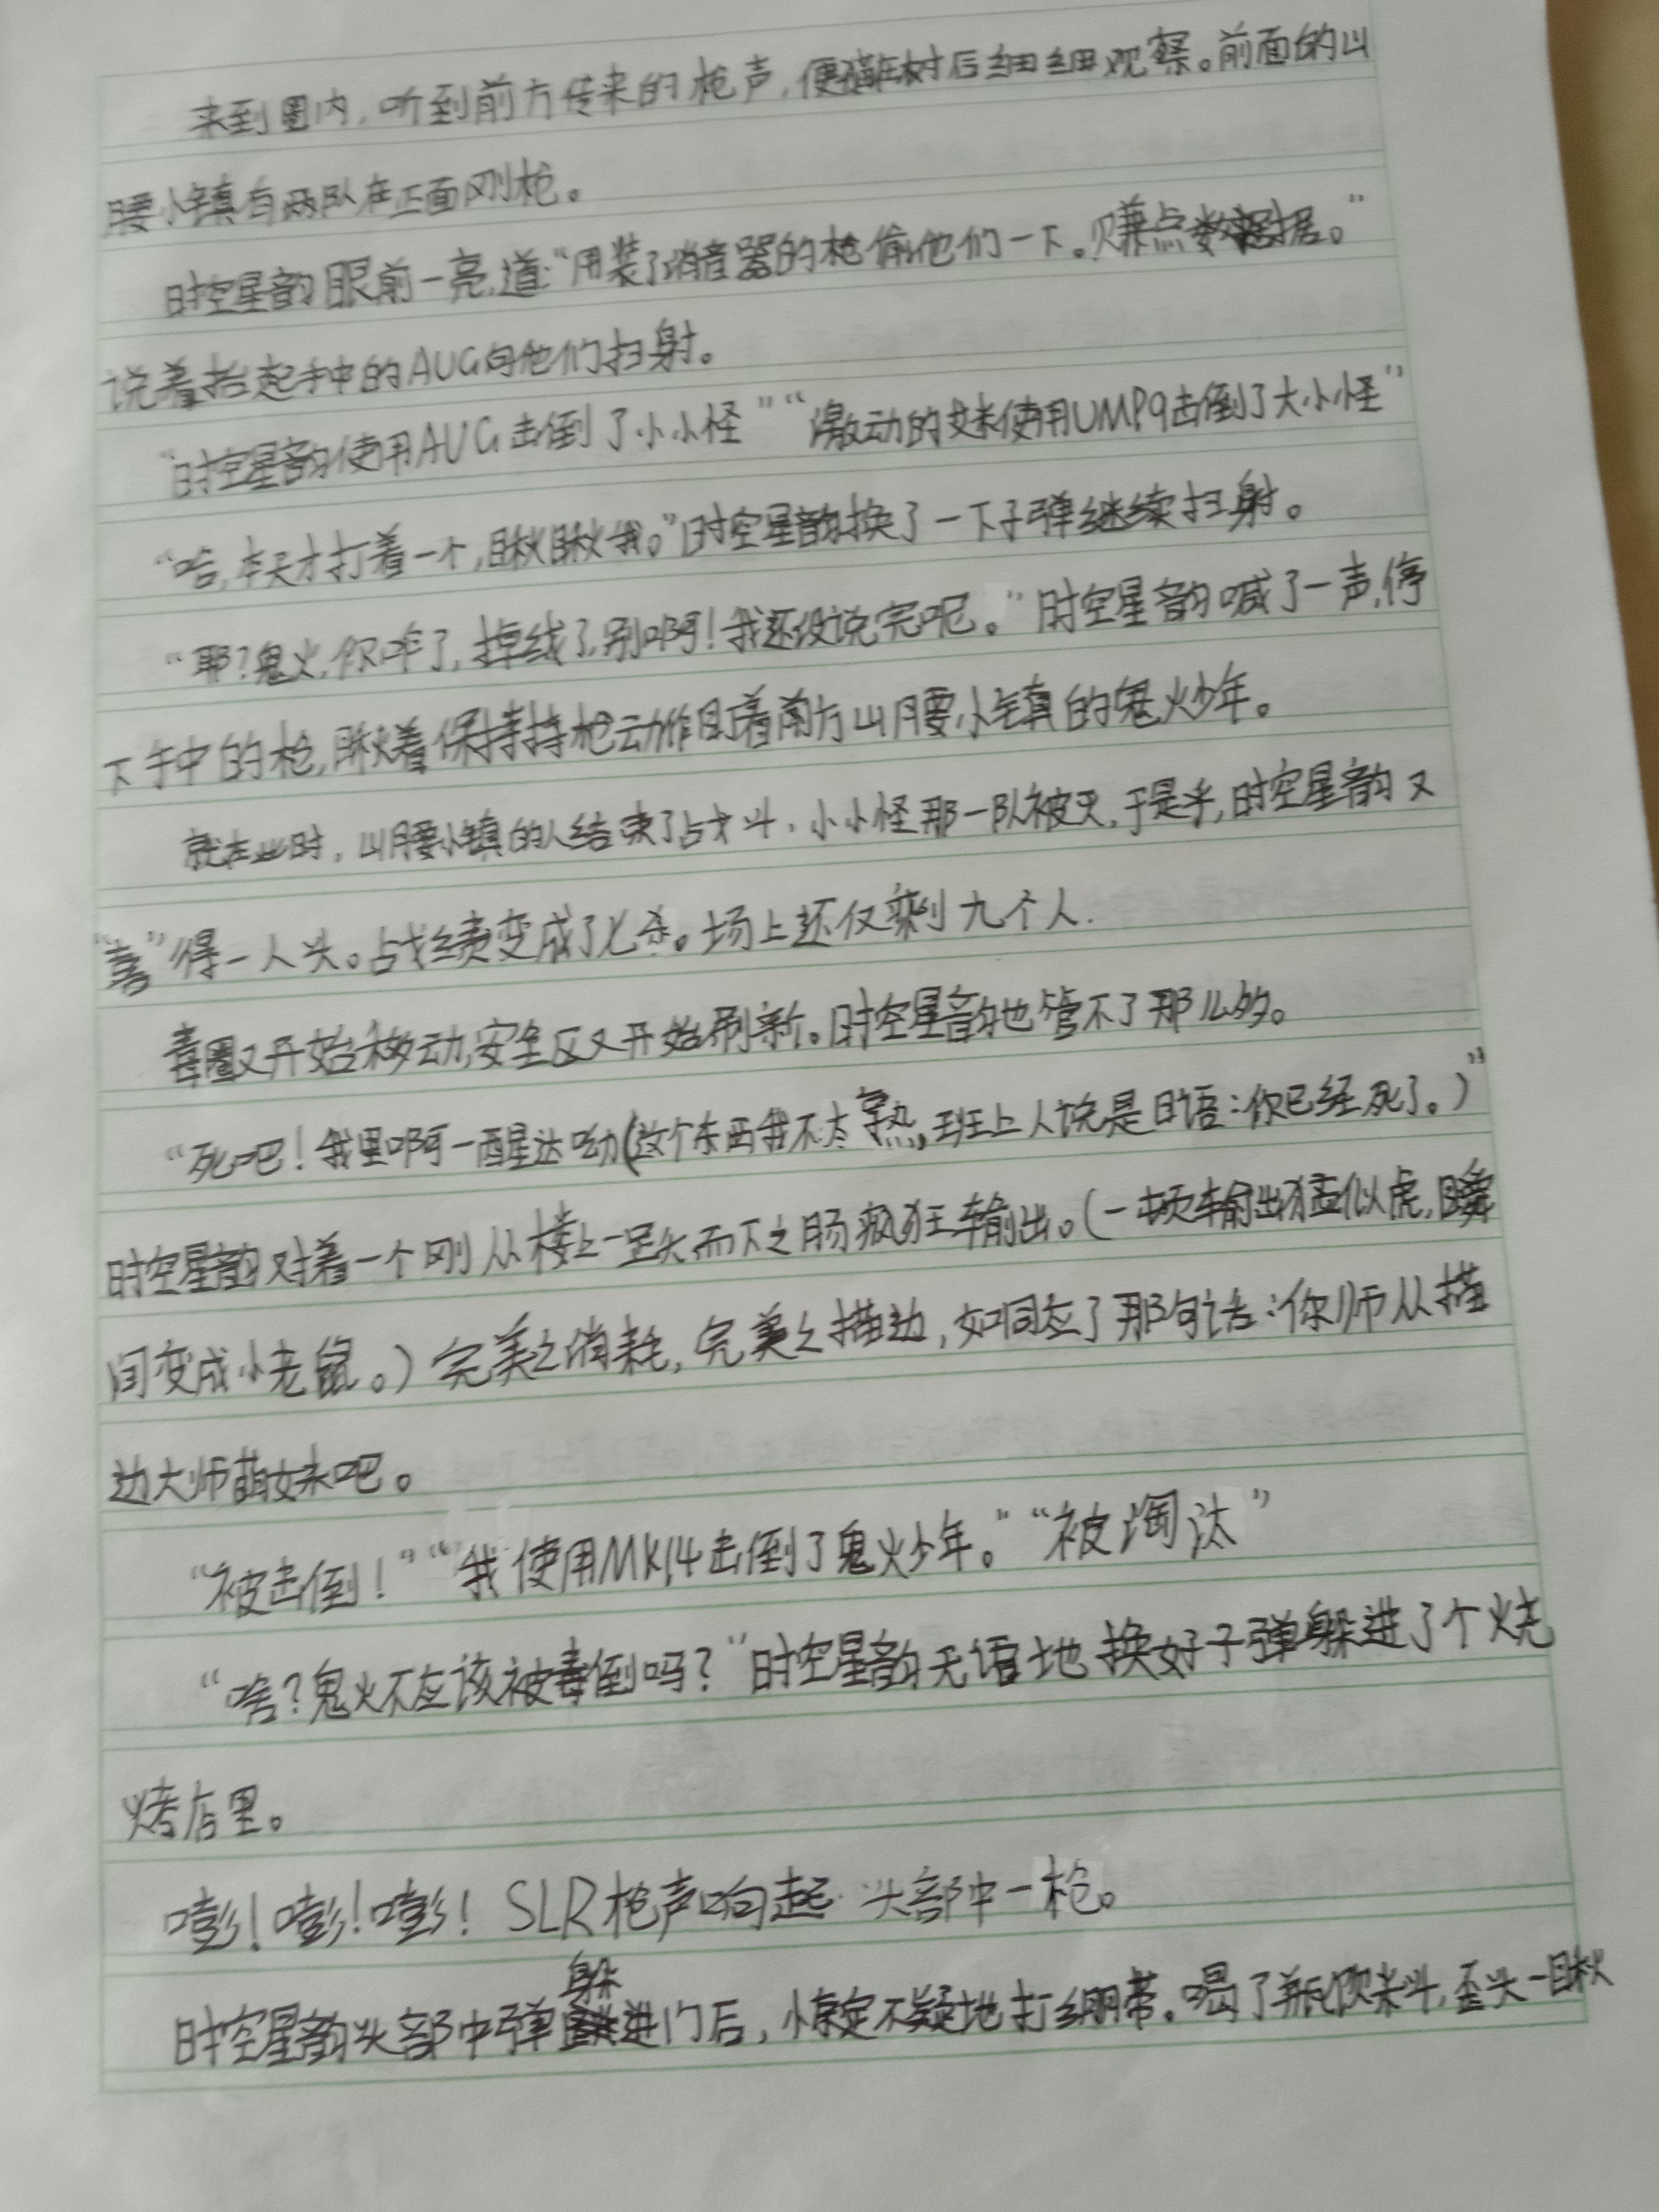 来到圈内,听到前方传来的枪声,便猫在树后细细观察。前面的山
腰小镇有两队在正面刚枪。
时空星韵眼前一亮,道:“用装了消音器的枪偷他们一下。赚点数据。”
说着抬起手中的AUG向他们扫射。
“时空星韵使用AUG击倒了小小怪”“激动的妹使用UMP9击倒了大小怪”
“哈,本天才打着一个,瞅瞅我。”时空星韵换了一下子弹继续扫射。
“耶?鬼火,你咋了,掉线了,别啊!我还没说完呢。”时空星韵喊了一声,停
下手中的枪,瞅着保持持枪动作盯着南方山腰小镇的鬼火少年。
就在此时,山腰小镇的人结束了战斗,小小怪那一队被灭,于是乎,时空星韵又
“喜”得一人头。战绩变成了七杀。场上还仅剩九个人.
毒圈又开始移动,安全区又开始刷新。时空星韵也管不了那么多。
“死吧!我里啊一醒达呦(这个东西我不太熟,班上人说是日语:你已经死了。)”
时空星韵对着一个刚从楼上一跃而下之肠疯狂输出。(一顿输出猛似虎,瞬
间变成小老鼠。)完美之消耗,完美之描边,如同应了那句话:你师从描
边大师萌妹吧。
“被击倒!”“我使用MK14击倒了鬼火少年。”“被淘汰”
“啥?鬼火不应该被毒倒吗?”时空星韵无语地换好子弹躲进了个烧
烤店里。
嘭!嘭!嘭!SLR枪声响起 头部中一枪。
时空星韵头部中弹躲进门后,惊定不疑地打绷带。喝了瓶饮料,歪头一瞅